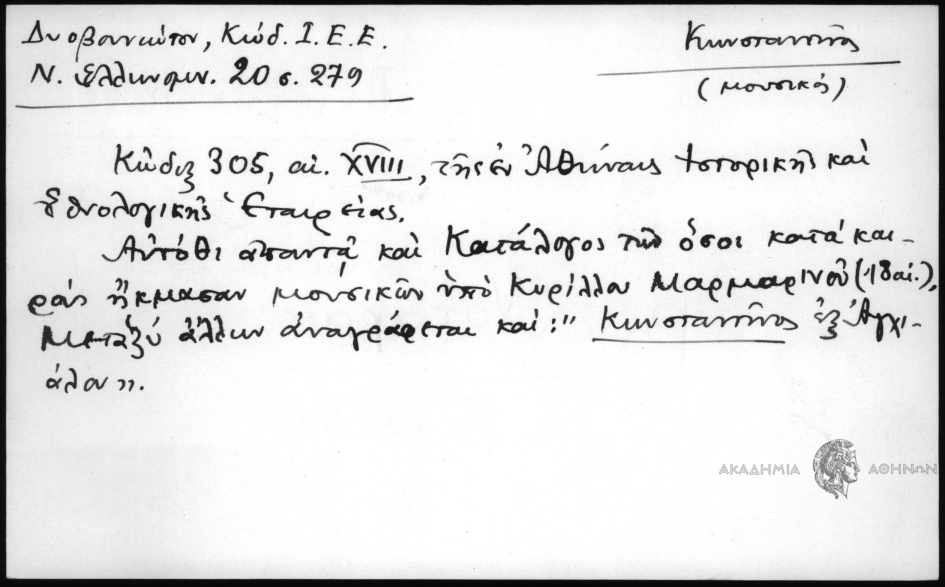 Δυοβουνιώτου, Κώδ. Ι.Ε.Ε.
Ν. Ἑλληνομν. 20 σ. 279
Κωνσταντῖνος
(μουσικός)
Κῶδιξ 305, αἰ. XVIII, τῆς ἐν Ἀθήναις Ἱστορικῆς καὶ
Ἐθνολογικῆς Ἑταιρείας.
Αὐτόθι ἀπαντᾷ καὶ Κατάλογος τῶν ὅσοι κατὰ και-
ροὺς ἤκμασαν μουσικῶν ὑπὸ Κυρίλλου Μαρμαρινοῦ (18 αἰ.),
Μεταξὺ ἄλλων ἀναγράφεται καὶ: " Κωνσταντῖνος ἐξ Ἀγχι-
άλου ".
ΑΚΑΔΗΜΙΑ ΑΘΗΝΩΝ